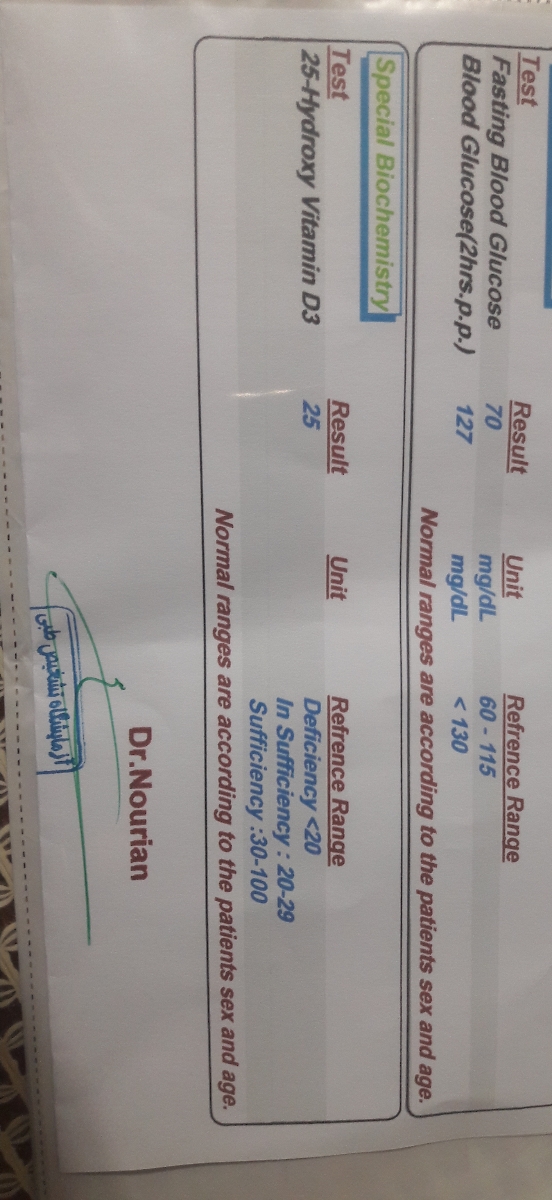 Test Result Unit Refrence Range
Fasting Blood Glucose 70 mg/dL 60 - 115
Blood Glucose(2hrs.p.p.) 127 mg/dL < 130
Normal ranges are according to the patients sex and age.
Special Biochemistry
Test Result Unit Refrence Range
25-Hydroxy Vitamin D3 25 Deficiency <20
In Sufficiency : 20-29
Sufficiency :30-100
Normal ranges are according to the patients sex and age.
Dr.Nourian
آزمایشگاه تشخیص طبی